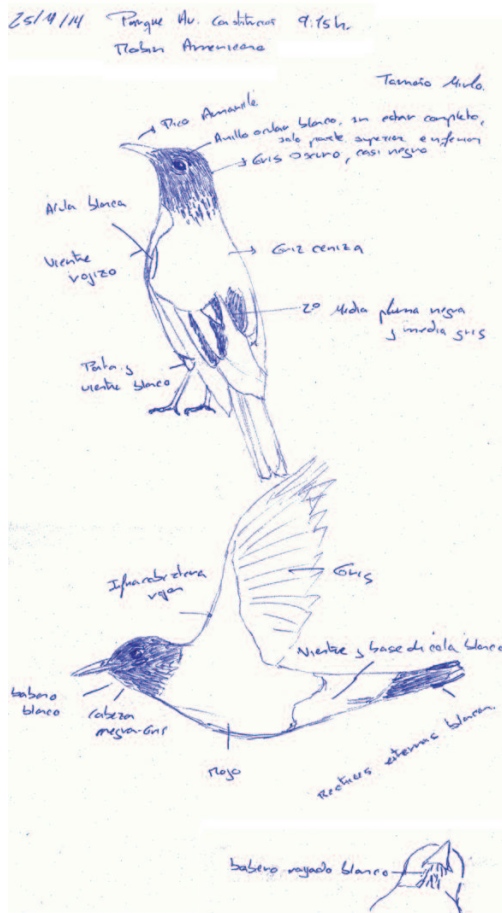 25/4/14 Parque Av. Constitución 9:15 h.
Robin Americano
Tamaño Mirlo.
Pico Amarillo
Anillo ocular blanco, sin estar completo,
solo parte superior e inferior
Gris oscuro, casi negro
Álula blanca
Vientre
rojizo
Gris ceniza
2º Media pluma negra
y media gris
Pata y
vientre blanco
Infracobertera
roja
Gris
Vientre y base de cola blanco
babero
blanco
cabeza
negra-gris
Rojo
Rectrices externas blancas.
babero rayado blanco